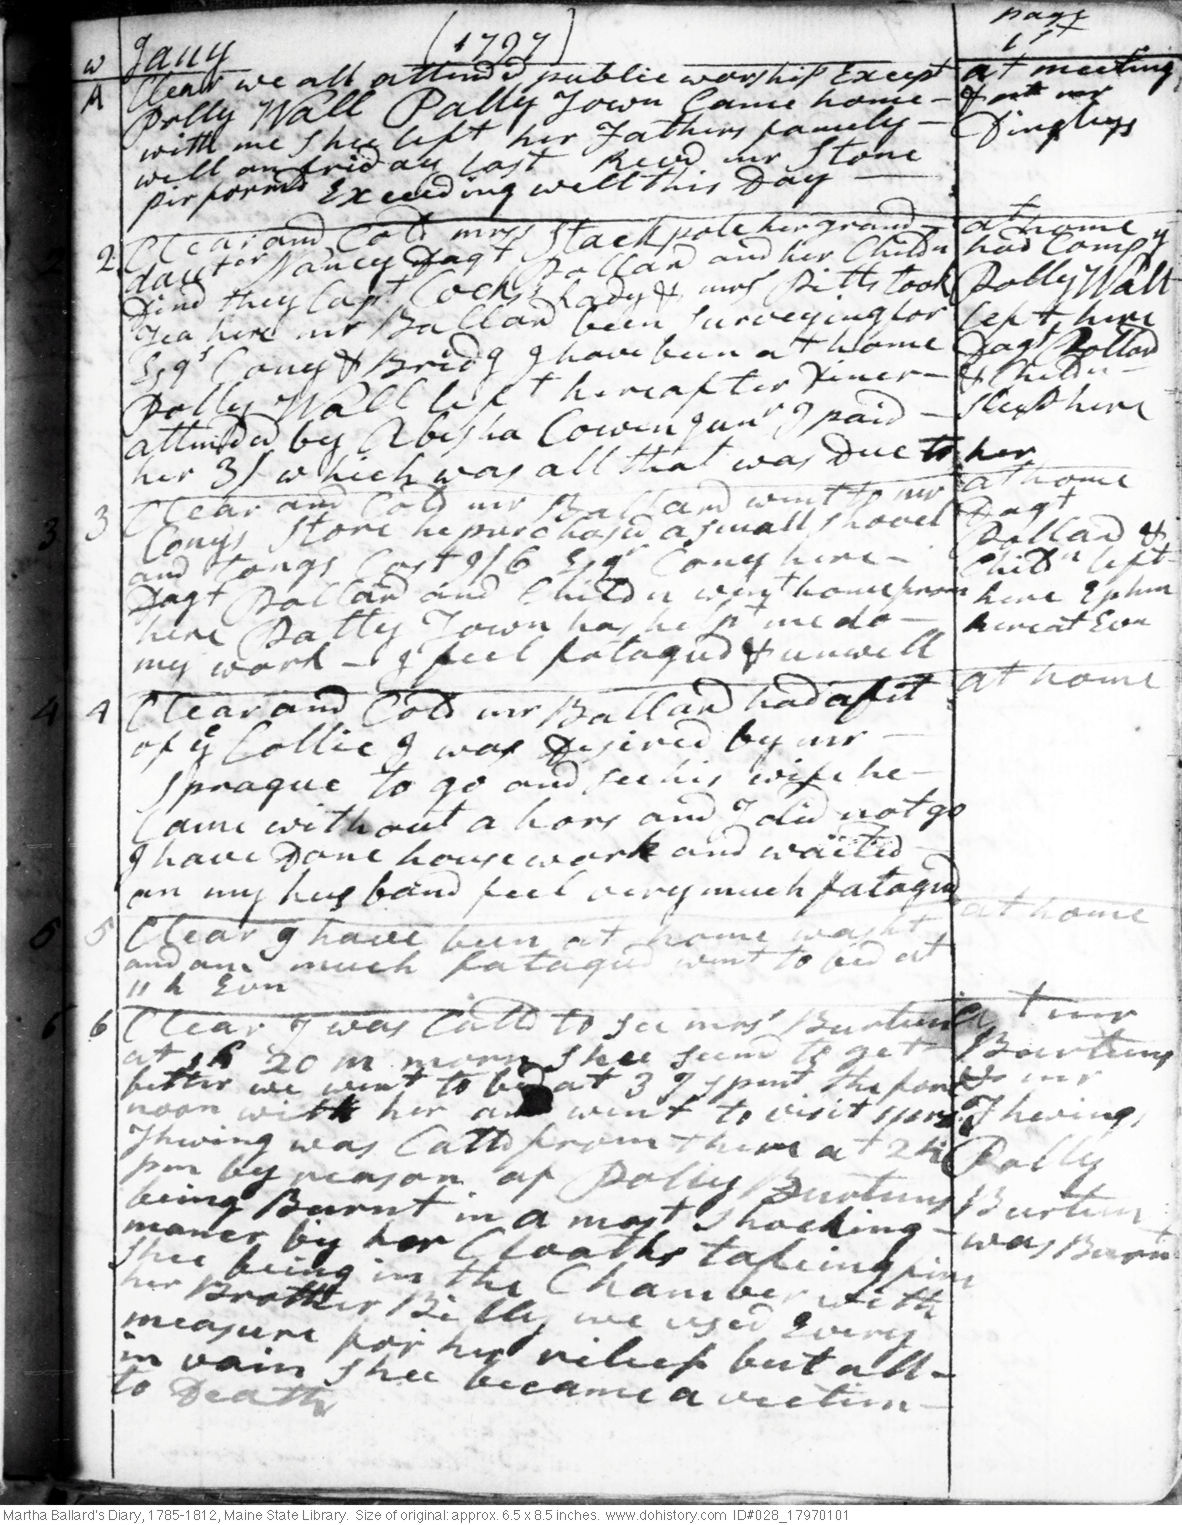 w Jany (1797) page 1st
A Clear we all attended public worship Except at meeting
Polly Wall Polly Town Came home - & att mr
with me Shee left her Fathers famely - Dingleys
well on friday last Revd mr Stone
pirformd Exceeding well this Day
2 Clear and Cold mrs Stackpole her grand at home
dauter Nancy Dagt Pollard and her Childn had Comp y
Dind they Capt Cocks Lady & mrs Pitts took Polly Wall
Tea here mr Ballard been Surveying for left here
Esqr Cony & Bridg I have been at home Dagt Pollard
Polly Wall left here after Diner - & the Dn -
attended by Abisha Cowen Junr I paid - sleep here
her 3/ which was all that was Due to her
3 3 Clear and Cold mr Ballard went to mr at home
Conys Store he purchased a Small Shovel Dagt
and Tongs Cost 9/6 Esqr Cony here - Pollard &
Dagt Pollard and Childn went home from Childn left
here Patty Town has helpt me do - here Ephm
my work - I feel fatagud & unwell here at Evn
4 4 Clear and Cold mr Ballard had a fit at home
of ye Collic I was Desired by mr -
Sprague to go and see his wife he -
Came without a hors and I did not go
I have Done house work and waited
on my husband feel very much fatagud
5 5 Clear I have been at home washt at home
and am much fatagud went to bed at
11 h Evn
6 6 Clear I was Calld to See mrs Burtun at mr
at 1 h 20 m morn Shee Seemd to get Burtuns
better we went to bed at 3 I spent the fore & mr
noon with her and went to visit mrs Thwings
Thwing was Calld from them at 2 h Polly
pm by reason of Polly Burtuns Burtun
being Burnt in a most Shocking - was Burn
maner by her Cloaths takeing fire
Shee being in the Chamber with
her Brother Billy we used Every
measure for her relief but all -
in vain Shee became a victim -
to Death
Martha Ballard's Diary, 1785-1812, Maine State Library. Size of original: approx. 6.5 x 8.5 inches. www.dohistory.com ID#028_17970101